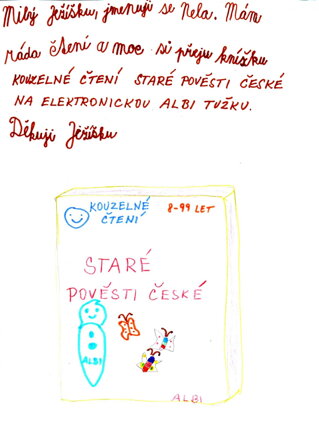 Milý Ježíšku, jmenuji se Nela. Mám
ráda čtení a moc si přeju knížku
KOUZELNÉ ČTENÍ STARÉ POVĚSTI ČESKÉ
NA ELEKTRONICKOU ALBI TUŽKU.
Děkuji Ježíšku
KOUZELNÉ
ČTENÍ
8-99 LET
STARÉ
POVĚSTI ČESKÉ
ALBI
ALBI